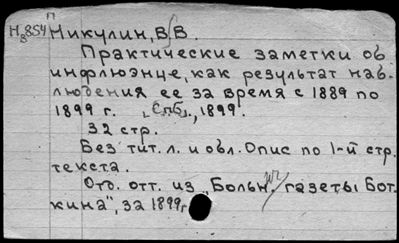 П
Н 8854 Никулин, В. В.
Практические заметки об
инфлюэнце, как результат наб-
людения ее за время с 1889 по
1899 г. [Спб.], 1899.
32 стр.
Без тит. л. и обл. Опис по 1-й стр.
текста.
Отд. отт. из „Больн. газеты Бот-
кина", за 1899 г.